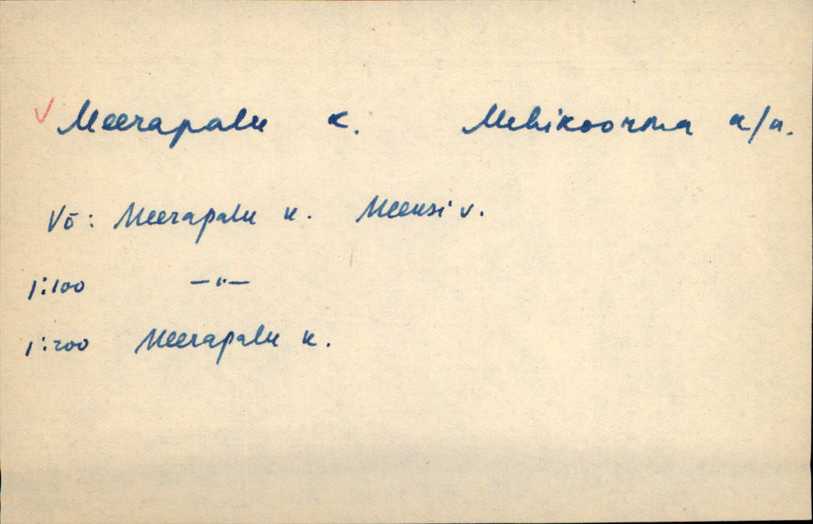 ✓ Meerapalu k. Mehikoorma k/n.
Võ: Meerapalu k. Meeksi v.
1:100 —"—
1:200 Meerapalu k.